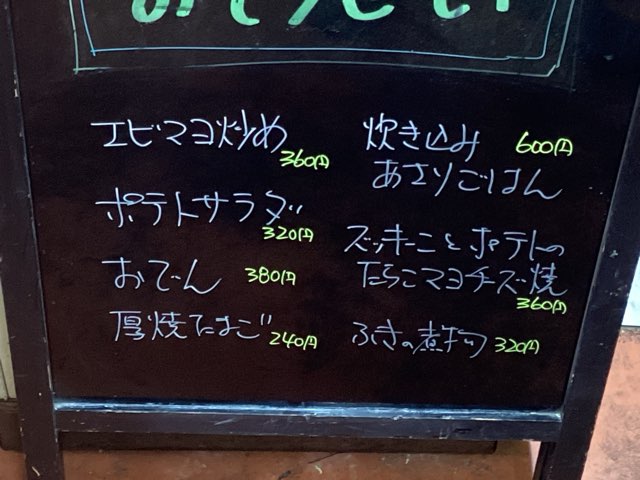 エビマヨ炒め
360円
ポテトサラダ
320円
おでん 380円
厚焼たまご
240円
炊き込み 600円
あさりごはん
ズッキーニとポテトの
たらこマヨチーズ焼
360円
ふきの煮物 320円